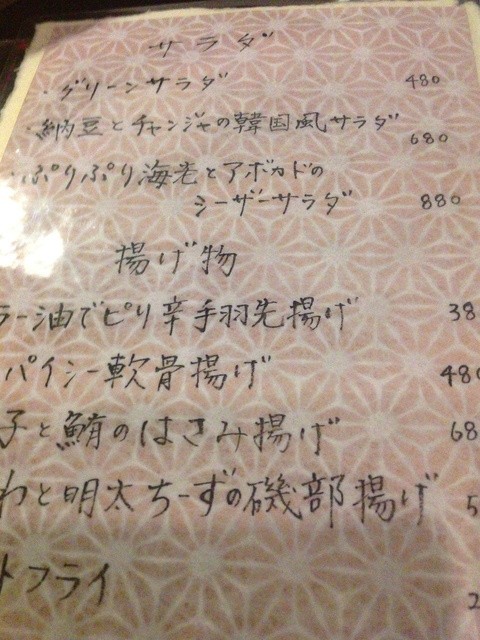 サラダ
・グリーンサラダ 480
・納豆とチャンジャの韓国風サラダ 680
・ぷりぷり海老とアボカドの
シーザーサラダ 880
揚げ物
ラー油でピリ辛手羽先揚げ 38
パイシー軟骨揚げ 480
子と鮪のはさみ揚げ 68
わと明太ちーずの磯部揚げ 5
トフライ 2